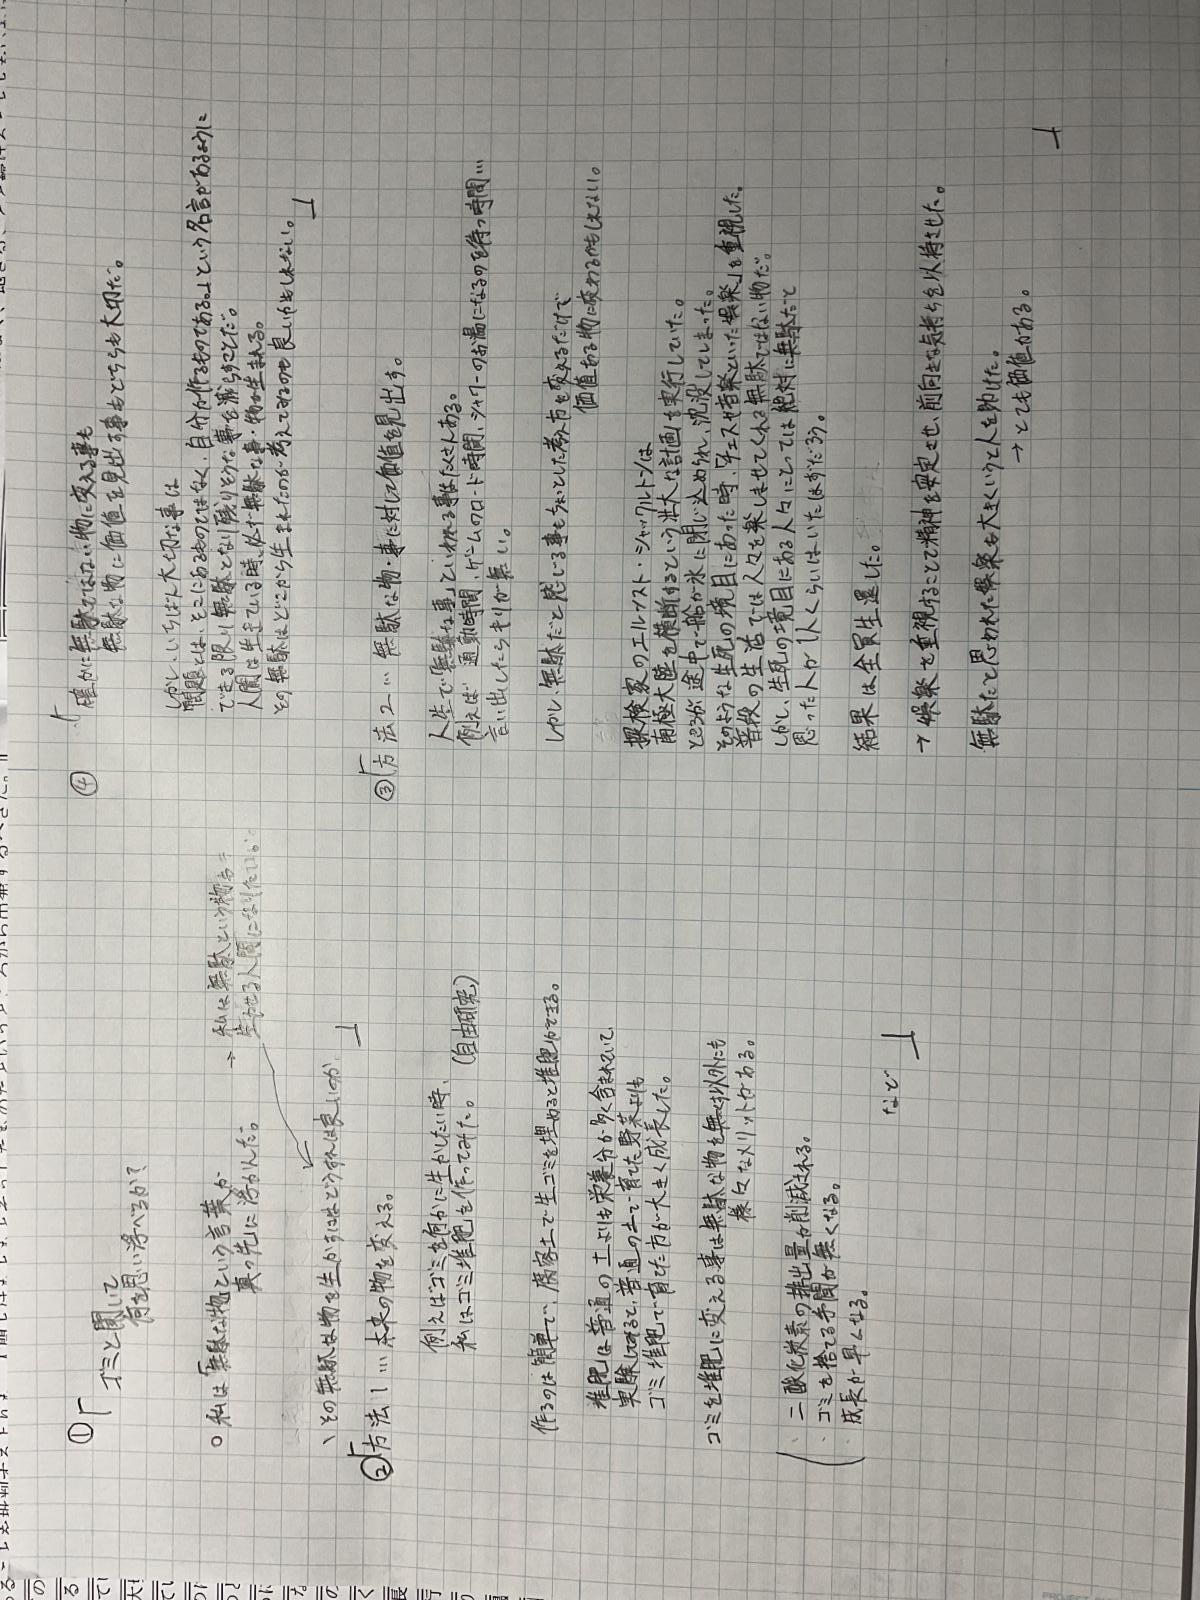 ①「ゴミと聞いて
何を思い浮べるか？
○私は「無駄な物」という言葉が
真っ先に浮かんだ。
→ 私は無駄という物を
生かせる人間になりたい
、その無駄な物を生かすにはどうすれば良いのか 」
②「方法1… 本来の物を変える。
例えばゴミを何かに生かしたい時、
私はゴミ堆肥を作ってみた。(自由研究)
作るのは簡単で、腐葉土で生ゴミを埋めると堆肥ができる。
堆肥は普通の土よりも栄養分が多く含まれていて、
実験してみると、普通の土で育てた野菜よりも
ゴミ堆肥で育てた方が大きく成長した。
ゴミを堆肥に変える事は無駄な物を無くす以外にも
様々なメリットがある。
・二酸化炭素の排出量が削減される。
・ゴミを捨てる手間が無くなる。
・成長が早くなる。
など 」
③「方法2… 無駄な物・事に対して価値を見出す。
人生で「無駄な事」といわれる事はたくさんある。
例えば 通勤時間、ゲームのロード時間、シャワーのお湯になるのを待つ時間…
言い出したらキリが無い。
しかし、無駄だと感じる事もちょっとした考え方を変えるだけで
価値ある物に変わるかもしれない。
探検家のエルネスト・シャックルトンは
南極大陸を横断するという壮大な計画を実行していた。
ところが途中で船が氷に閉じ込められ、沈没してしまった。
そのような生死の境目にあった時、「チェスや音楽といった娯楽」を重視した。
普段の生活では人々を楽しませてくれる無駄ではない物だ。
しかし、生死の境目にある人々にとっては絶対に無駄だと
思った人が1人くらいはいたはずだろう。
結果は全員生還した。
→ 娯楽を重視することで精神を安定させ、前向きな気持ちを以持させた。
無駄だと思われた娯楽も大きくいうと人を助けた。
→とても価値がある。 」
④「確かに無駄ではない物に変える事も
無駄な物に価値を見出す事もどちらも大切だ。
しかし、いちばん大切な事は
問題とは、そこにあるものではなく、自分が作るものである。」という名言があるように
できる限り無駄となり残りそうな事を減らすことだ。
人間は生きている時、必ず無駄な事・物が生まれる。
その無駄はどこから生まれたのか考えてみるのも良いかもしれない。 」